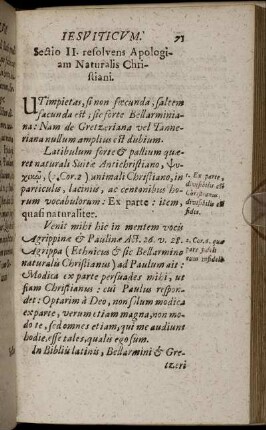 IESVITICVM. 71
Sectio II. resolvens Apologi-
am Naturalis Chri-
stiani.
UTimpietas, si non fœcunda, saltem
facunda est; sic forte Bellarminia-
na: Nam de Gretzeriana vel Tanne-
riana nullum amplius est dubium.
Latibulum forte & pastium quæ-
ret naturali Suitæ Antichristiano, Ψυ-
χικῷ, (1. Cor. 2) animali Christiano, in
particulis, laciniis, ac centonibus ho-
rum vocabulorum: Ex parte: item,
quasi naturaliter.
1. Ex parte,
fidis.
Venit mihi hic in mentem vocis
Agrippinæ & Paulinæ Act. 26. v. 28.
Agrippa (Ethnicus & sic Bellarmino
naturalis Christianus) ad Paulum ait:
Modica ex parte persuades mihi, ut
fiam Christianus: cui Paulus respon-
det: Optarim à Deo, non solùm modica
ex parte, verùm etiam magna, non mo-
dò te, sed omnes etiam, qui me audiunt
hodie, esse tales, qualis ego sum.
In Bibliis latinis, Bellarmini & Gre-
tzeri